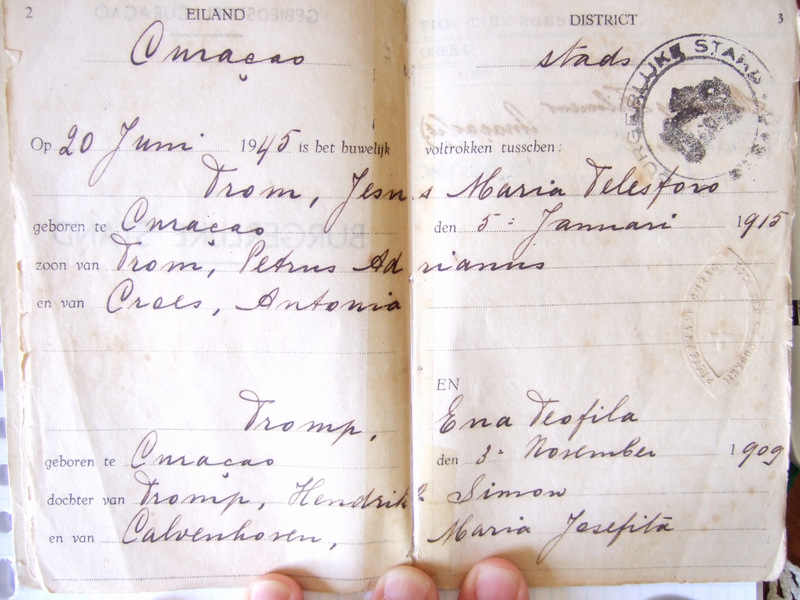 2 EILAND DISTRICT 3
Curaçao stads
BURGERLIJKE STAND
Op 20 Juni 1945 is het huwelijk voltrokken tusschen:
Trom, Jesus Maria Telesforo
geboren te Curaçao den 5 Januari 1915
zoon van Trom, Petrus Adrianus
en van Croes, Antonia
EN
Tromp, Ena Teofila
geboren te Curaçao den 3 November 1909
dochter van Tromp, Hendrik Simon
en van Calvenhoven, Maria Josefita